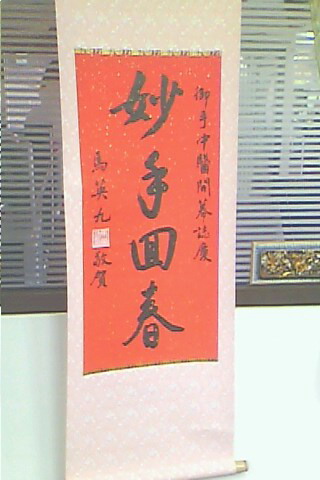 御手中醫開幕誌慶
妙手回春
馬英九
敬賀